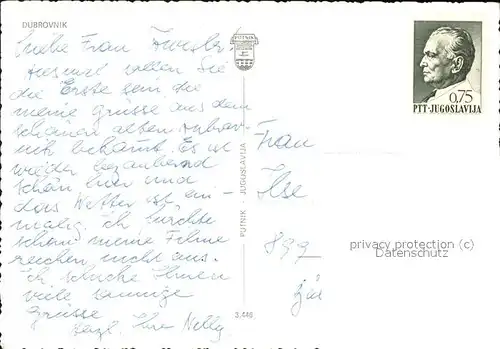 DUBROVNIK
Liebe Frau
wollen Sie
die Erste sein, die
meine Grüsse aus dem
schönen alten Dubrov-
nik bekommt. Es ist
wieder bezaubernd
schön hier und
das Wetter ist ein-
malig. Ich fürchte
schon meine Filme
reichen nicht aus.
Ich schicke Ihnen
viele sonnige
Grüsse
Herzl. Ihre Nelly
PUTNIK
PUTNIK - JUGOSLAVIJA
3.446
0,75
PTT-JUGOSLAVIJA
Frau
Ilse
899
privacy protection (c)
Datenschutz